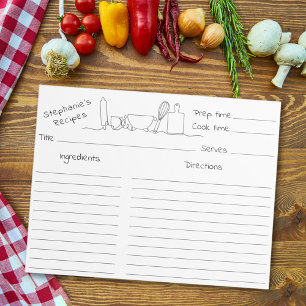 Stephanie's
Recipes
Prep time
Cook time
Title
Serves
Ingredients
Directions